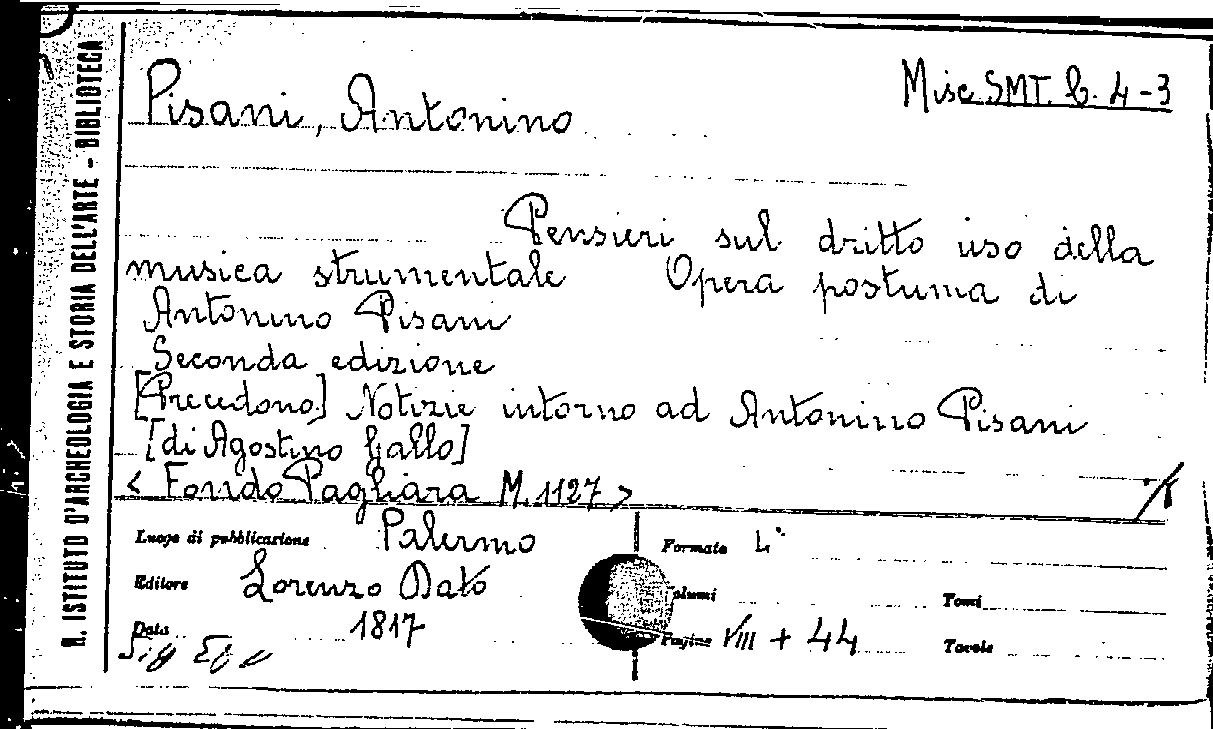 R. ISTITUTO D'ARCHEOLOGIA E STORIA DELL'ARTE - BIBLIOTECA
Pisani, Antonino
Misc SMT. b. 4-3
Pensieri sul dritto uso della
musica strumentale Opera postuma di
Antonino Pisani
Seconda edizione
[Precedono] Notizie intorno ad Antonino Pisani
[di Agostino Gallo]
< Fondo Pagliara M. 1127 >
Luogo di pubblicazione Palermo
Editore Lorenzo Dato
Data 1817
Formato
Volumi
Tomi
Pagine VIII + 44
Tavole